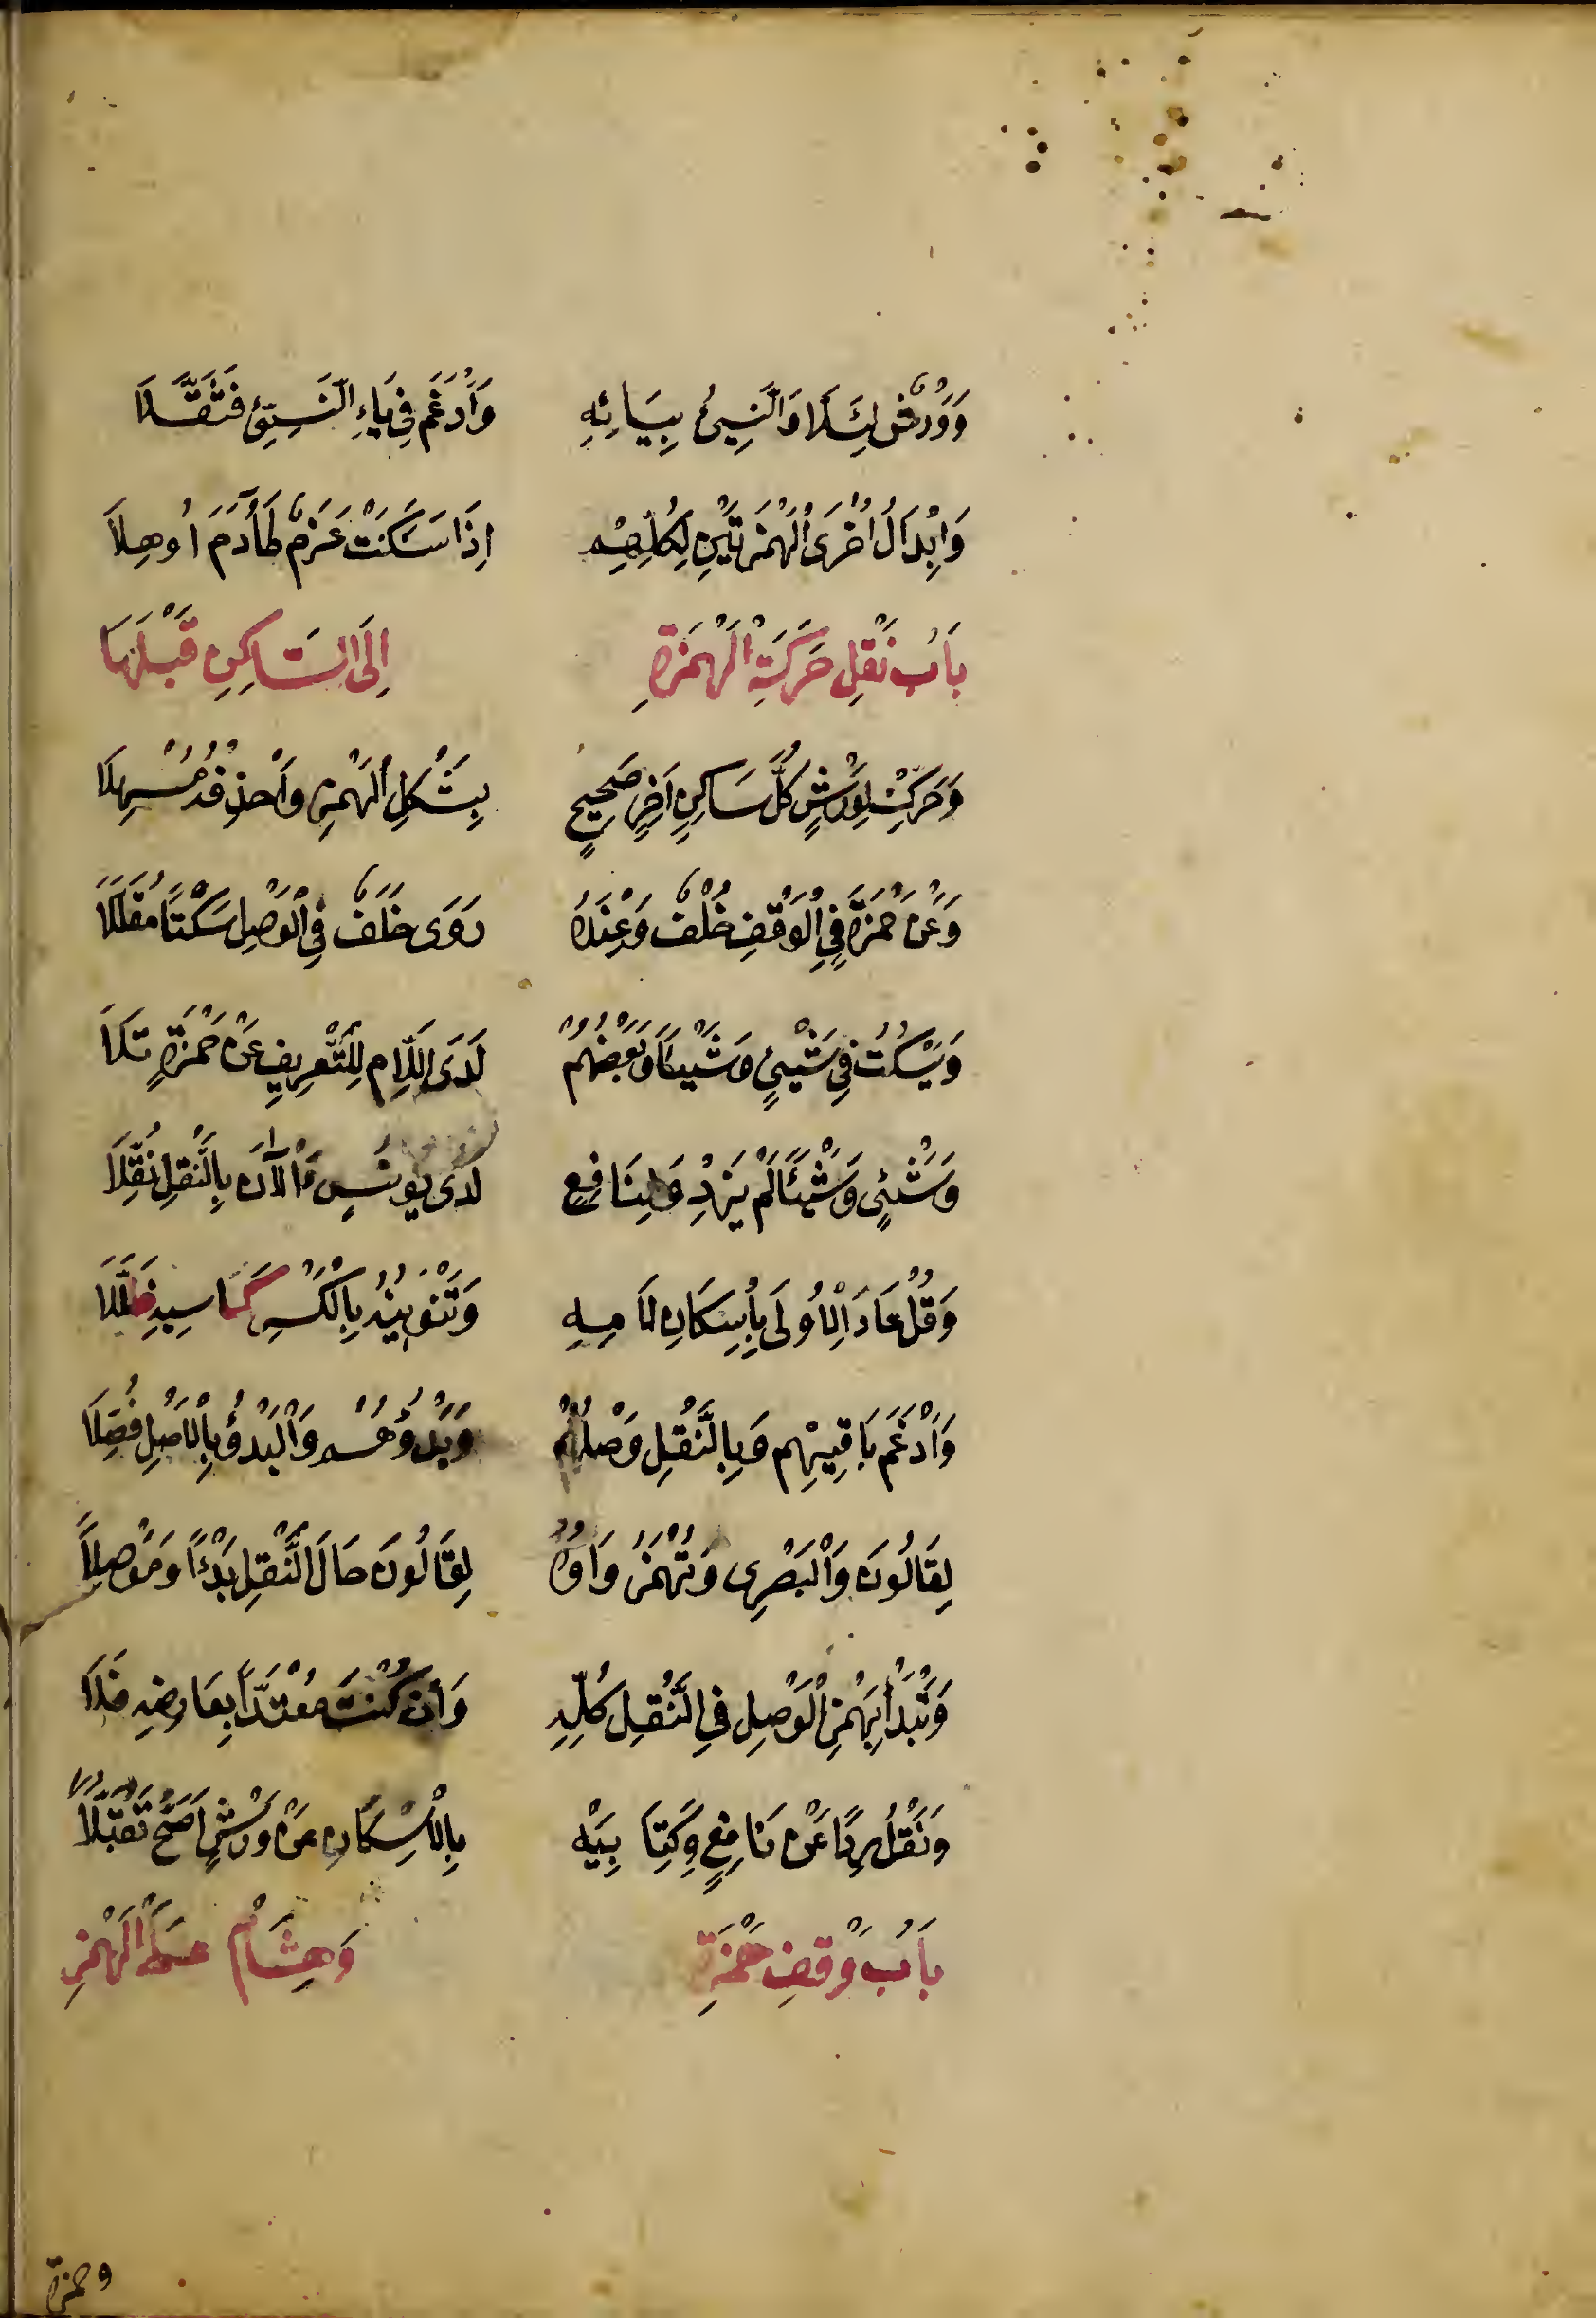 وَوَرْشٌ لِئَلَّا وَالنَّسِيُّ بِيَائِهِ وَأَدْغَمَ فِي يَاءِ النَّسِيِّ فَثَقَّلَا
وَاِبْدَالُ اُخْرَى الْهَمْزَتَيْنِ لِكُلِّهِمْ اِذَا سَكَنَتْ عَزْمٌ كَأٰدَمَ اُوهِلَا
بَابُ نَقْلِ حَرَكَةِ الْهَمْزَةِ اِلَى السَّاكِنِ قَبْلَهَا
وَحَرِّكْ لِوَرْشٍ كُلَّ سَاكِنٍ اٰخِرٍ صَحِيحٍ بِشَكْلِ الْهَمْزِ وَاحْذِفْهُ مُسْهِلَا
وَعَنْ حَمْزَةٍ فِي الْوَقْفِ خُلْفٌ وَعِنْدَهُ رَوَى خَلَفٌ فِي الْوَصْلِ سَكْتًا مُقَلَّلَا
وَيَسْكُتُ فِي شَيْئٍ وَشَيْئًا وَبَعْضُهُمْ لَدَى اللَّامِ لِلتَّعْرِيفِ عَنْ حَمْزَةٍ تَلَا
وَشَيْئٍ وَشَيْئًا لَمْ يَزِدْ وَلِنَافِعٍ لَدَى يُونُسٍ ءَآلْاٰنَ بِالنَّقْلِ نُقِّلَا
وَقُلْ عَادًا الْاُولَى بِاِسْكَانِ لَامِهِ وَتَنْوِينُهُ بِالْكَسْرِ كَاسِيهِ ظَلَّلَا
وَاَدْغَمَ بَاقِيهِمْ وَبِالنَّقْلِ وَصْلُهُمْ وَبَدْؤُهُمْ وَالْبَدْؤُ بِالْاَصْلِ فُضِّلَا
لِقَالُونَ وَالْبَصْرِى وَتُهْمَزُ وَاوُهُ لِقَالُونَ حَالَ النَّقْلِ بَدْءًا وَمَوْصِلَاً
وَتَبْدَأُ بِهَمْزِ الْوَصْلِ فِي النَّقْلِ كُلِّهِ وَاِنْ كُنْتَ مُعْتَدًّا بِعَارِضِهِ فَلَا
وَنَقْلُ رِدًا عَنْ نَافِعٍ وَكِتَابِيَهْ بِالْاِسْكَانِ عَنْ وَرْشٍ اَصَحُّ تَقَبُّلَاً
بَابُ وَقْفِ حَمْزَةَ وَهِشَامٌ عَلَى الْهَمْزِ
وحمزة